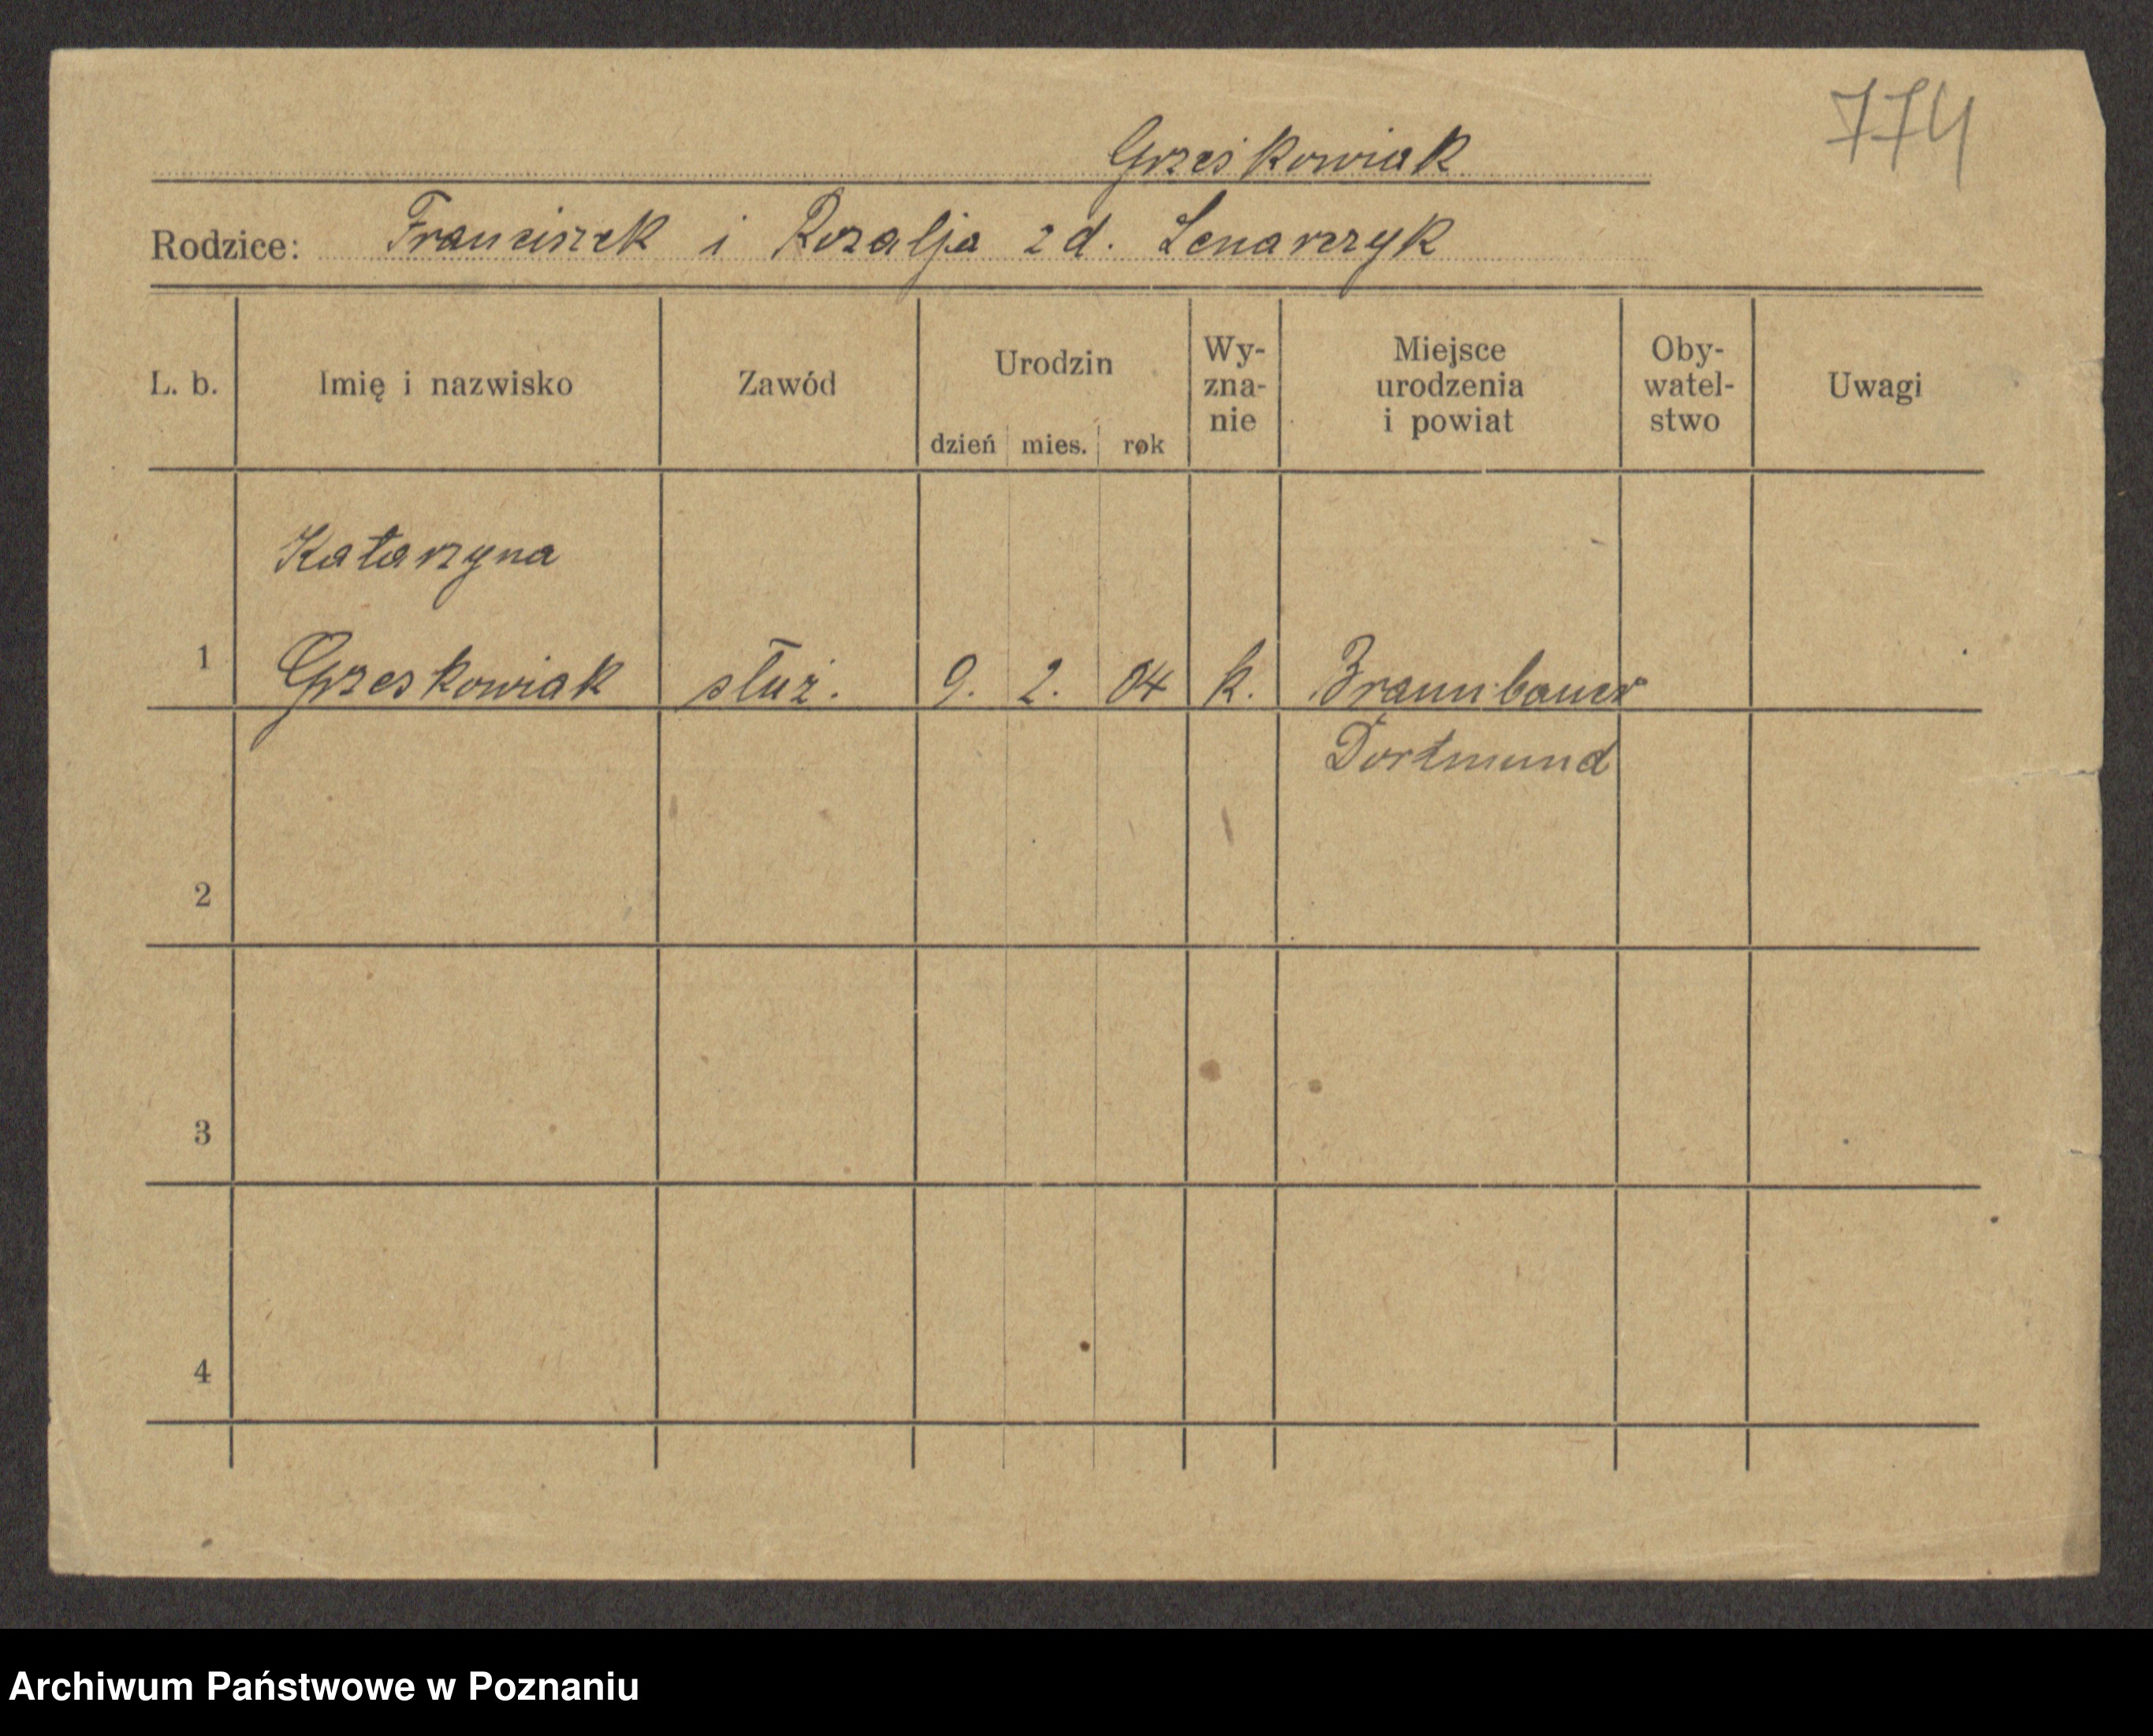 774
Grześkowiak
Rodzice: Franciszek i Rozalja z d. Lenarczyk
L. b. Imię i nazwisko Zawód Urodzin dzień mies. rok Wy-zna-nie Miejsce urodzenia i powiat Oby-watel-stwo Uwagi
Katarzyna
1 Grzeskowiak służ. 9. 2. 04 k. Braunbauer
Dortmund
2
3
4
Archiwum Państwowe w Poznaniu